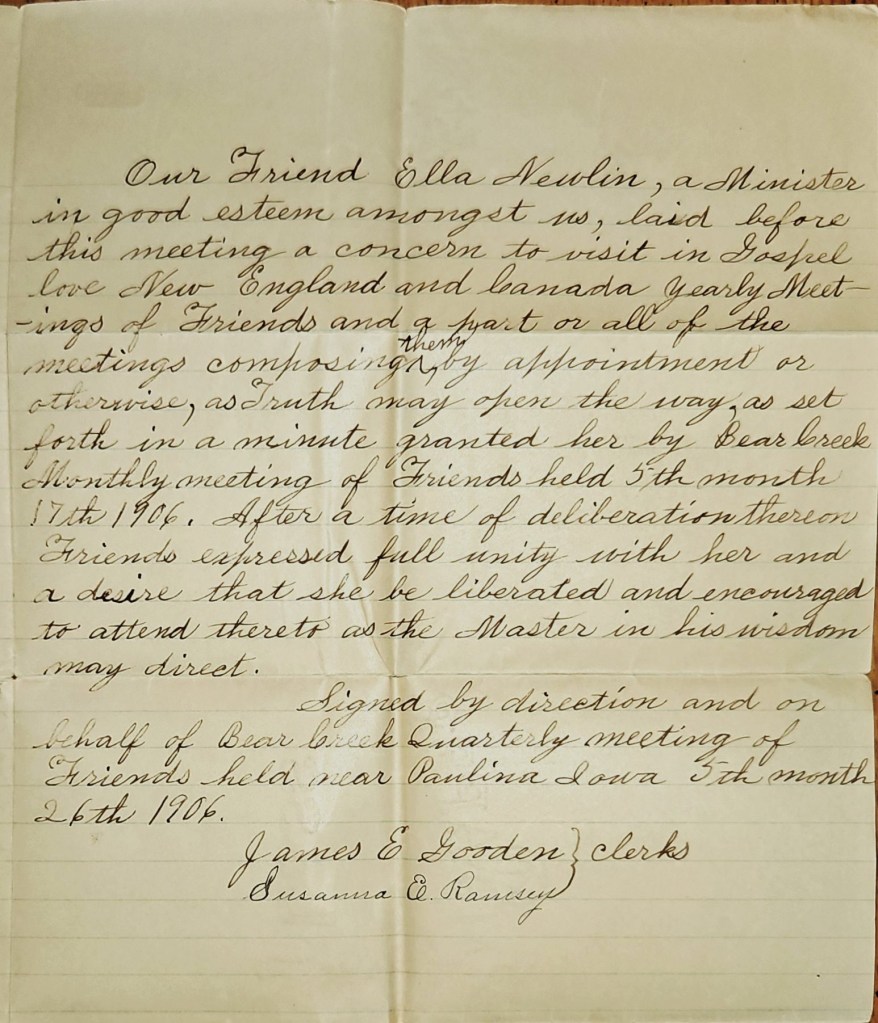 Our Friend Ella Newlin, a Minister
in good esteem amongst us, laid before
this meeting a concern to visit in Gospel
love New England and Canada Yearly Meet-
-ings of Friends and a part or all of the
meetings composing them, by appointment or
otherwise, as Truth may open the way, as set
forth in a minute granted her by Bear Creek
Monthly meeting of Friends held 5th month
17th 1906. After a time of deliberation thereon
Friends expressed full unity with her and
a desire that she be liberated and encouraged
to attend thereto as the Master in his wisdom
may direct.
Signed by direction and on
behalf of Bear Creek Quarterly meeting of
Friends held near Paulina Iowa 5th month
26th 1906.
James E Gooden } clerks
Susanna E. Ramsey